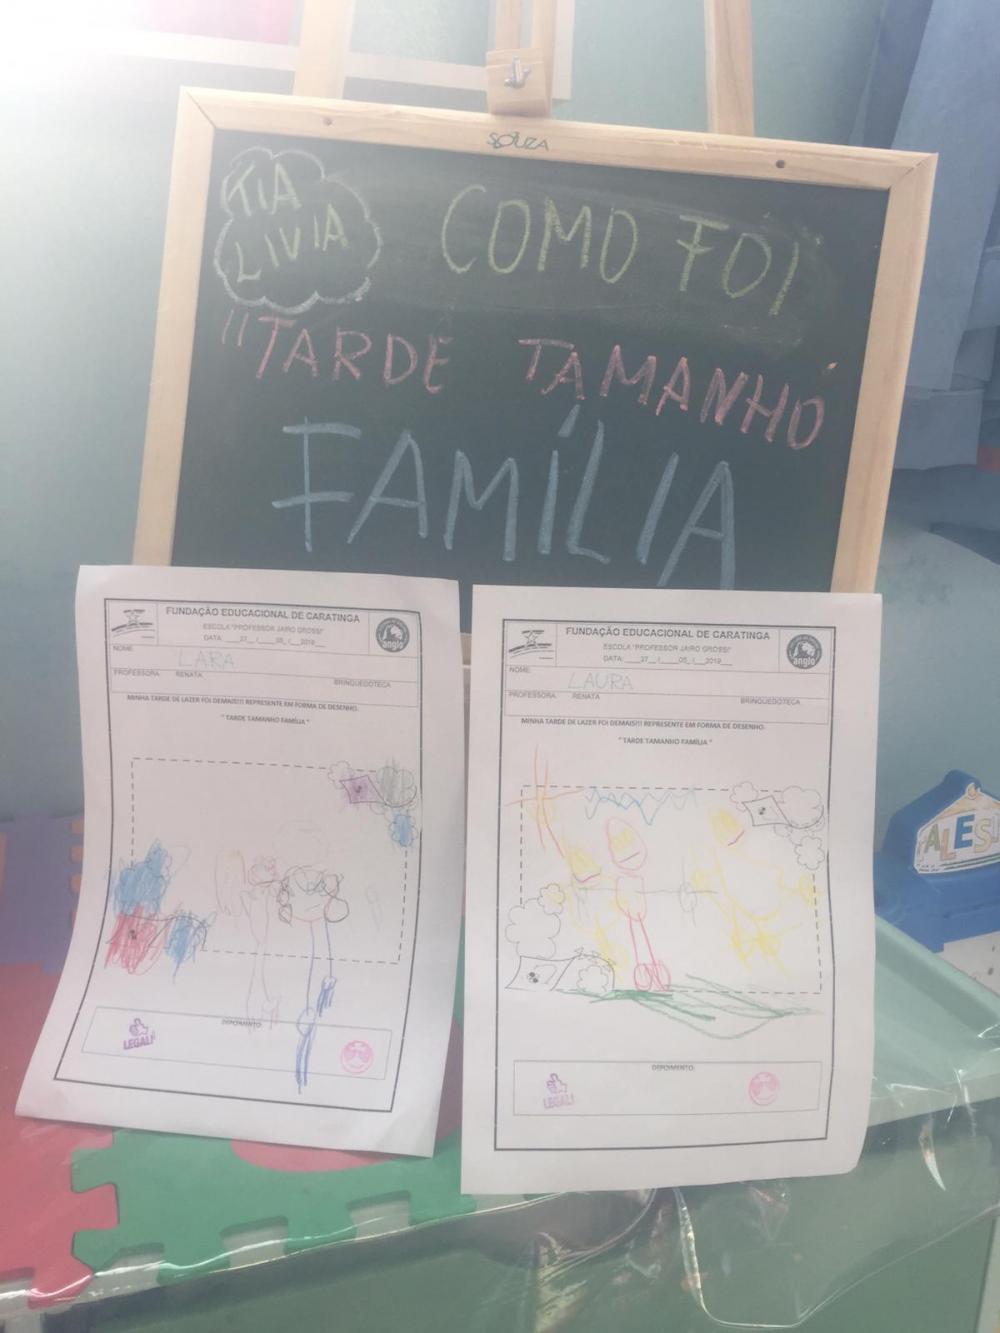 SOUZA
TIA
LIVIA
COMO FOI
"TARDE TAMANHO
FAMÍLIA
FUNDAÇÃO EDUCACIONAL DE CARATINGA
ESCOLA "PROFESSOR JAIRO GROSSI"
DATA: ____27__ /____05_ /__2019___
anglo
NOME: LARA
PROFESSORA: RENATA BRINQUEDOTECA
MINHA TARDE DE LAZER FOI DEMAIS!!! REPRESENTE EM FORMA DE DESENHO.
" TARDE TAMANHO FAMÍLIA "
DEPOIMENTO:
LEGAL!
FUNDAÇÃO EDUCACIONAL DE CARATINGA
ESCOLA "PROFESSOR JAIRO GROSSI"
DATA: ____27__ /____05_ /__2019___
anglo
NOME: LAURA
PROFESSORA: RENATA BRINQUEDOTECA
MINHA TARDE DE LAZER FOI DEMAIS!!! REPRESENTE EM FORMA DE DESENHO.
" TARDE TAMANHO FAMÍLIA "
DEPOIMENTO:
LEGAL!
ALES